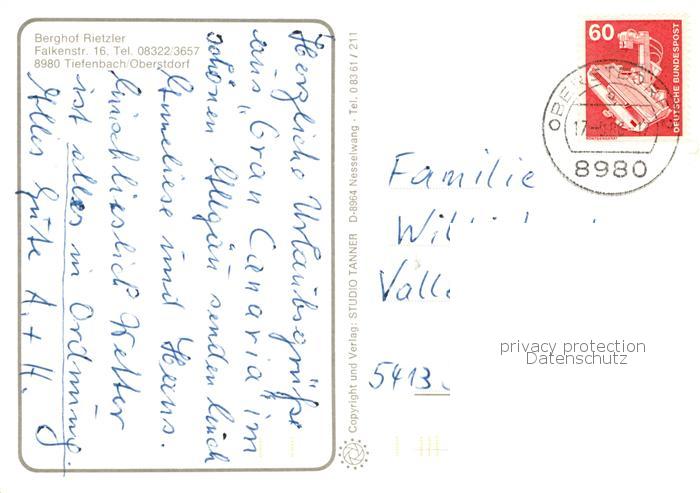 Berghof Rietzler
Falkenstr. 16, Tel. 08322/3657
8980 Tiefenbach/Oberstdorf
Herzliche Urlaubsgrüße
aus "Gran Canaria" im
schönen Allgäu senden Euch
Anneliese und Hans.
Einschließlich Wetter
ist alles in Ordnung.
Alles Gute A. + H.
Copyright und Verlag: STUDIO TANNER D-8964 Nesselwang · Tel. 0 83 61 / 211
60
DEUTSCHE BUNDESPOST
8980
Familie
Wil
Valle
5413
privacy protection
Datenschutz